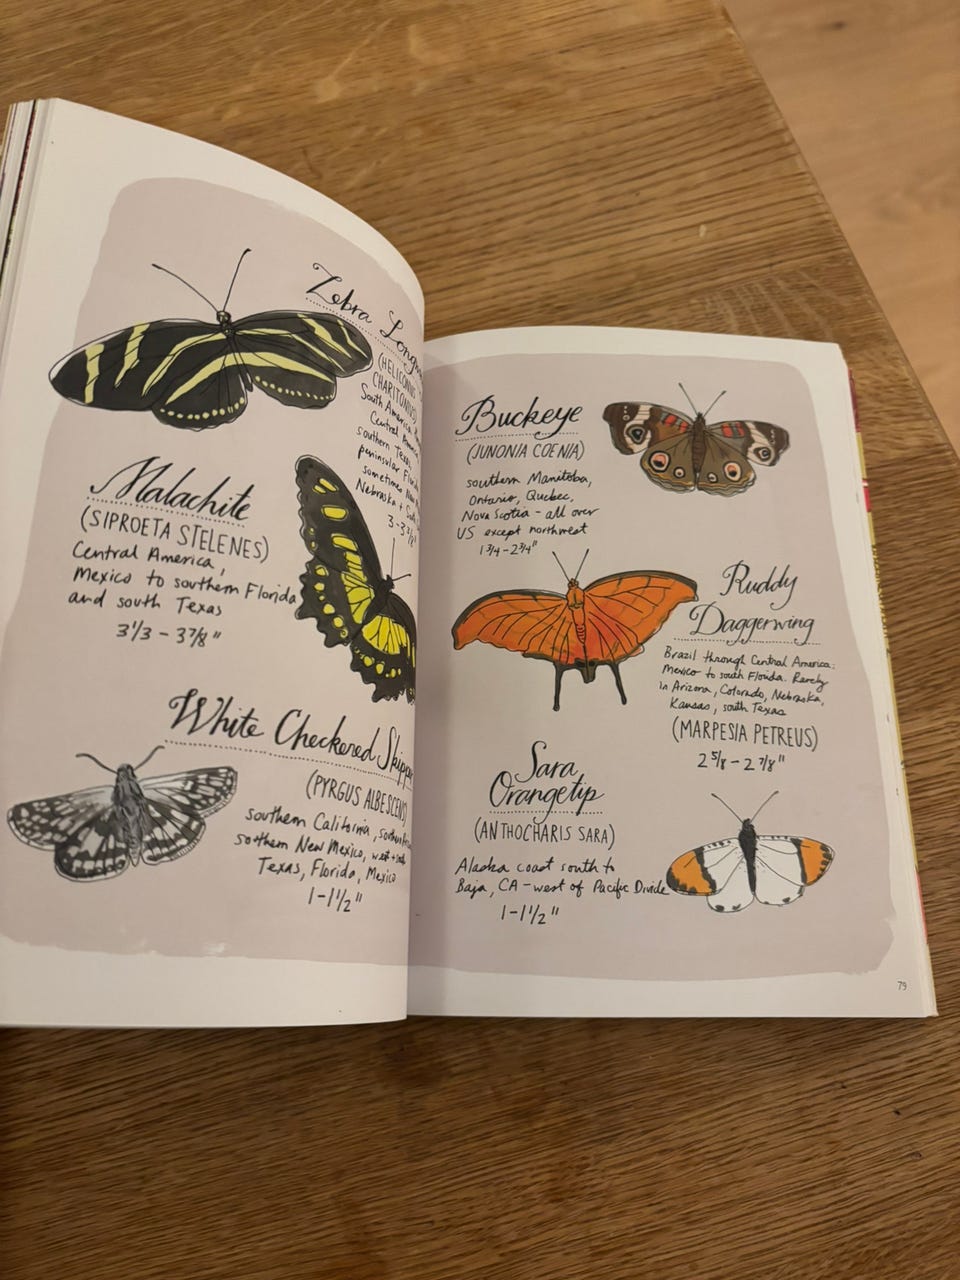 Zebra
(HELICONIUS
CHARITONIUS)
South America,
Central
southern Texas,
peninsular
sometimes
Nebraska +
3-3
Malachite
(SIPROETA STELENES)
Central America,
Mexico to southern Florida
and south Texas
3 1/3 - 3 7/8 "
White Checkered
(PYRGUS ALBESCENS)
southern California,
southern New Mexico, west +
Texas, Florida, Mexico
1-1 1/2 "
Buckeye
(JUNONIA COENIA)
southern Manitoba,
Ontario, Quebec,
Nova Scotia - all over
US except northwest
1 3/4 - 2 3/4 "
Ruddy
Daggerwing
Brazil through Central America:
Mexico to south Florida. Rarely
in Arizona, Colorado, Nebraska,
Kansas, south Texas
(MARPESIA PETREUS)
2 5/8 - 2 7/8 "
Sara
Orangetip
(ANTHOCHARIS SARA)
Alaska coast south to
Baja, CA - west of Pacific Divide
1-1 1/2 "
79